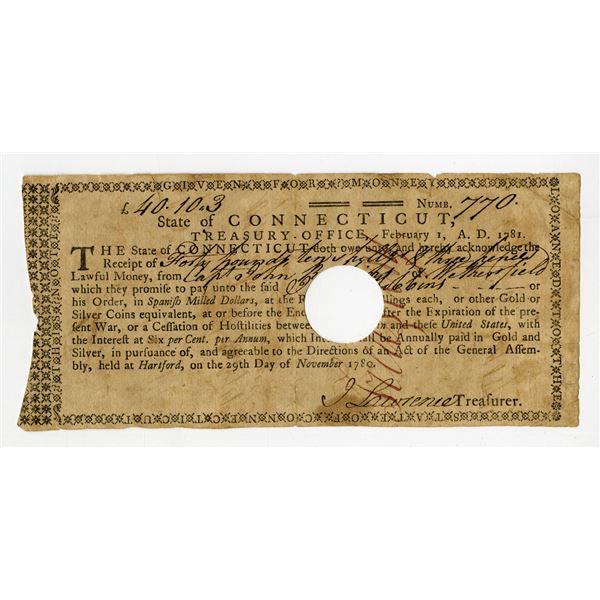 GIVEN FOR MONEY
LOANED TO THE
£ 40.10.3 NUMB. 770.
State of CONNECTICUT,
TREASURY-OFFICE, February 1, A. D. 1781.
THE State of CONNECTICUT doth owe unto and hereby acknowledge the
Receipt of Forty pounds, ten shills & three pence
Lawful Money, from Capt John of Wethersfield
which they promise to pay unto the said or
his Order, in Spanish Milled Dollars, at the llings each, or other Gold or
Silver Coins equivalent, at or before the End fter the Expiration of the pre-
sent War, or a Cessation of Hostilities between and these United States, with
the Interest at Six per Cent. per Annum, which Inter shall be Annually paid in Gold and
Silver, in pursuance of, and agreeable to the Directions of an Act of the General Assem-
bly, held at Hartford, on the 29th Day of November 1780.
J Lawrence Treasurer.
STATE OF CONNECTICUT